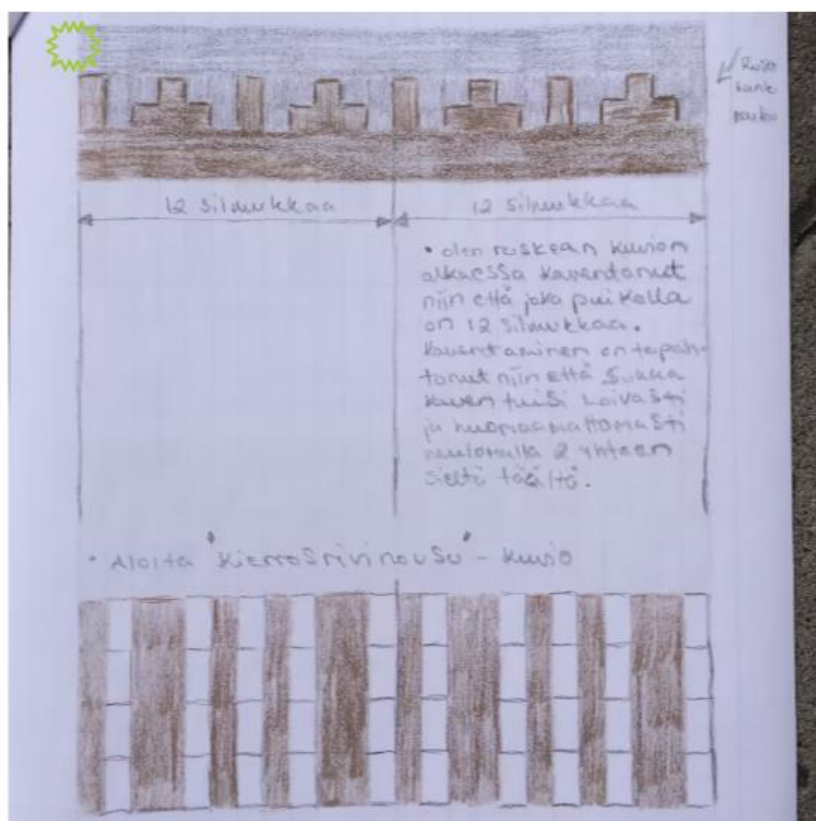 12 silmukkaa
12 silmukkaa
• olen ruskean kuvion
alkaessa kaventanut
niin että joka puikolla
on 12 silmukkaa.
Kaventaminen on tapah-
tunut niin että sukka
kaventuisi loivasti
ja huomaamattomasti
neulomalla 2 yhteen
sieltä täältä.
• Aloita "Kierrosrivinousu" - kuvio